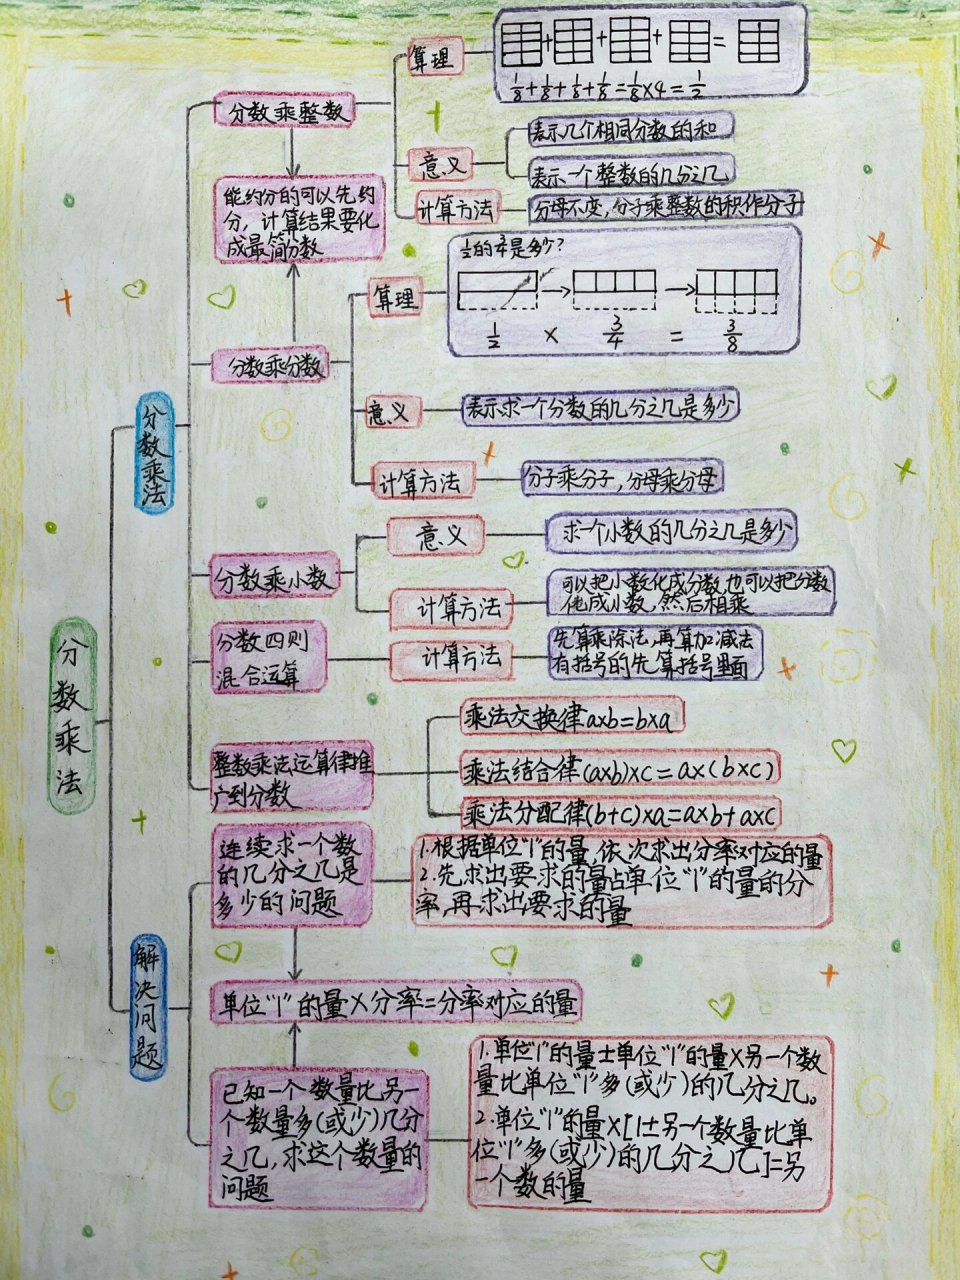 算理
+ + + =
1/8+1/8+1/8+1/8=1/8×4=1/2
分数乘整数
意义
表示几个相同分数的和
表示一个整数的几分之几
计算方法
分母不变,分子乘整数的积作分子
能约分的可以先约
分,计算结果要化
成最简分数
算理
1/2的3/4是多少?
1/2 × 3/4 = 3/8
分数乘分数
意义
表示求一个分数的几分之几是多少
计算方法
分子乘分子,分母乘分母
分数乘法
分数乘小数
意义
求一个小数的几分之几是多少
计算方法
可以把小数化成分数,也可以把分数
化成小数,然后相乘
分数四则
混合运算
计算方法
先算乘除法,再算加减法
有括号的先算括号里面
分数乘法
整数乘法运算律推
广到分数
乘法交换律a×b=b×a
乘法结合律(a×b)×c=a×(b×c)
乘法分配律(b+c)×a=a×b+a×c
连续求一个数
的几分之几是
多少的问题
1.根据单位“1”的量,依次求出分率对应的量
2.先求出要求的量占单位“1”的量的分
率,再求出要求的量
解决问题
单位“1”的量×分率=分率对应的量
已知一个数量比另一
个数量多(或少)几分
之几,求这个数量的
问题
1.单位“1”的量±单位“1”的量×另一个数
量比单位“1”多(或少)的几分之几。
2.单位“1”的量×[1±另一个数量比单
位“1”多(或少)的几分之几]=另
一个数的量